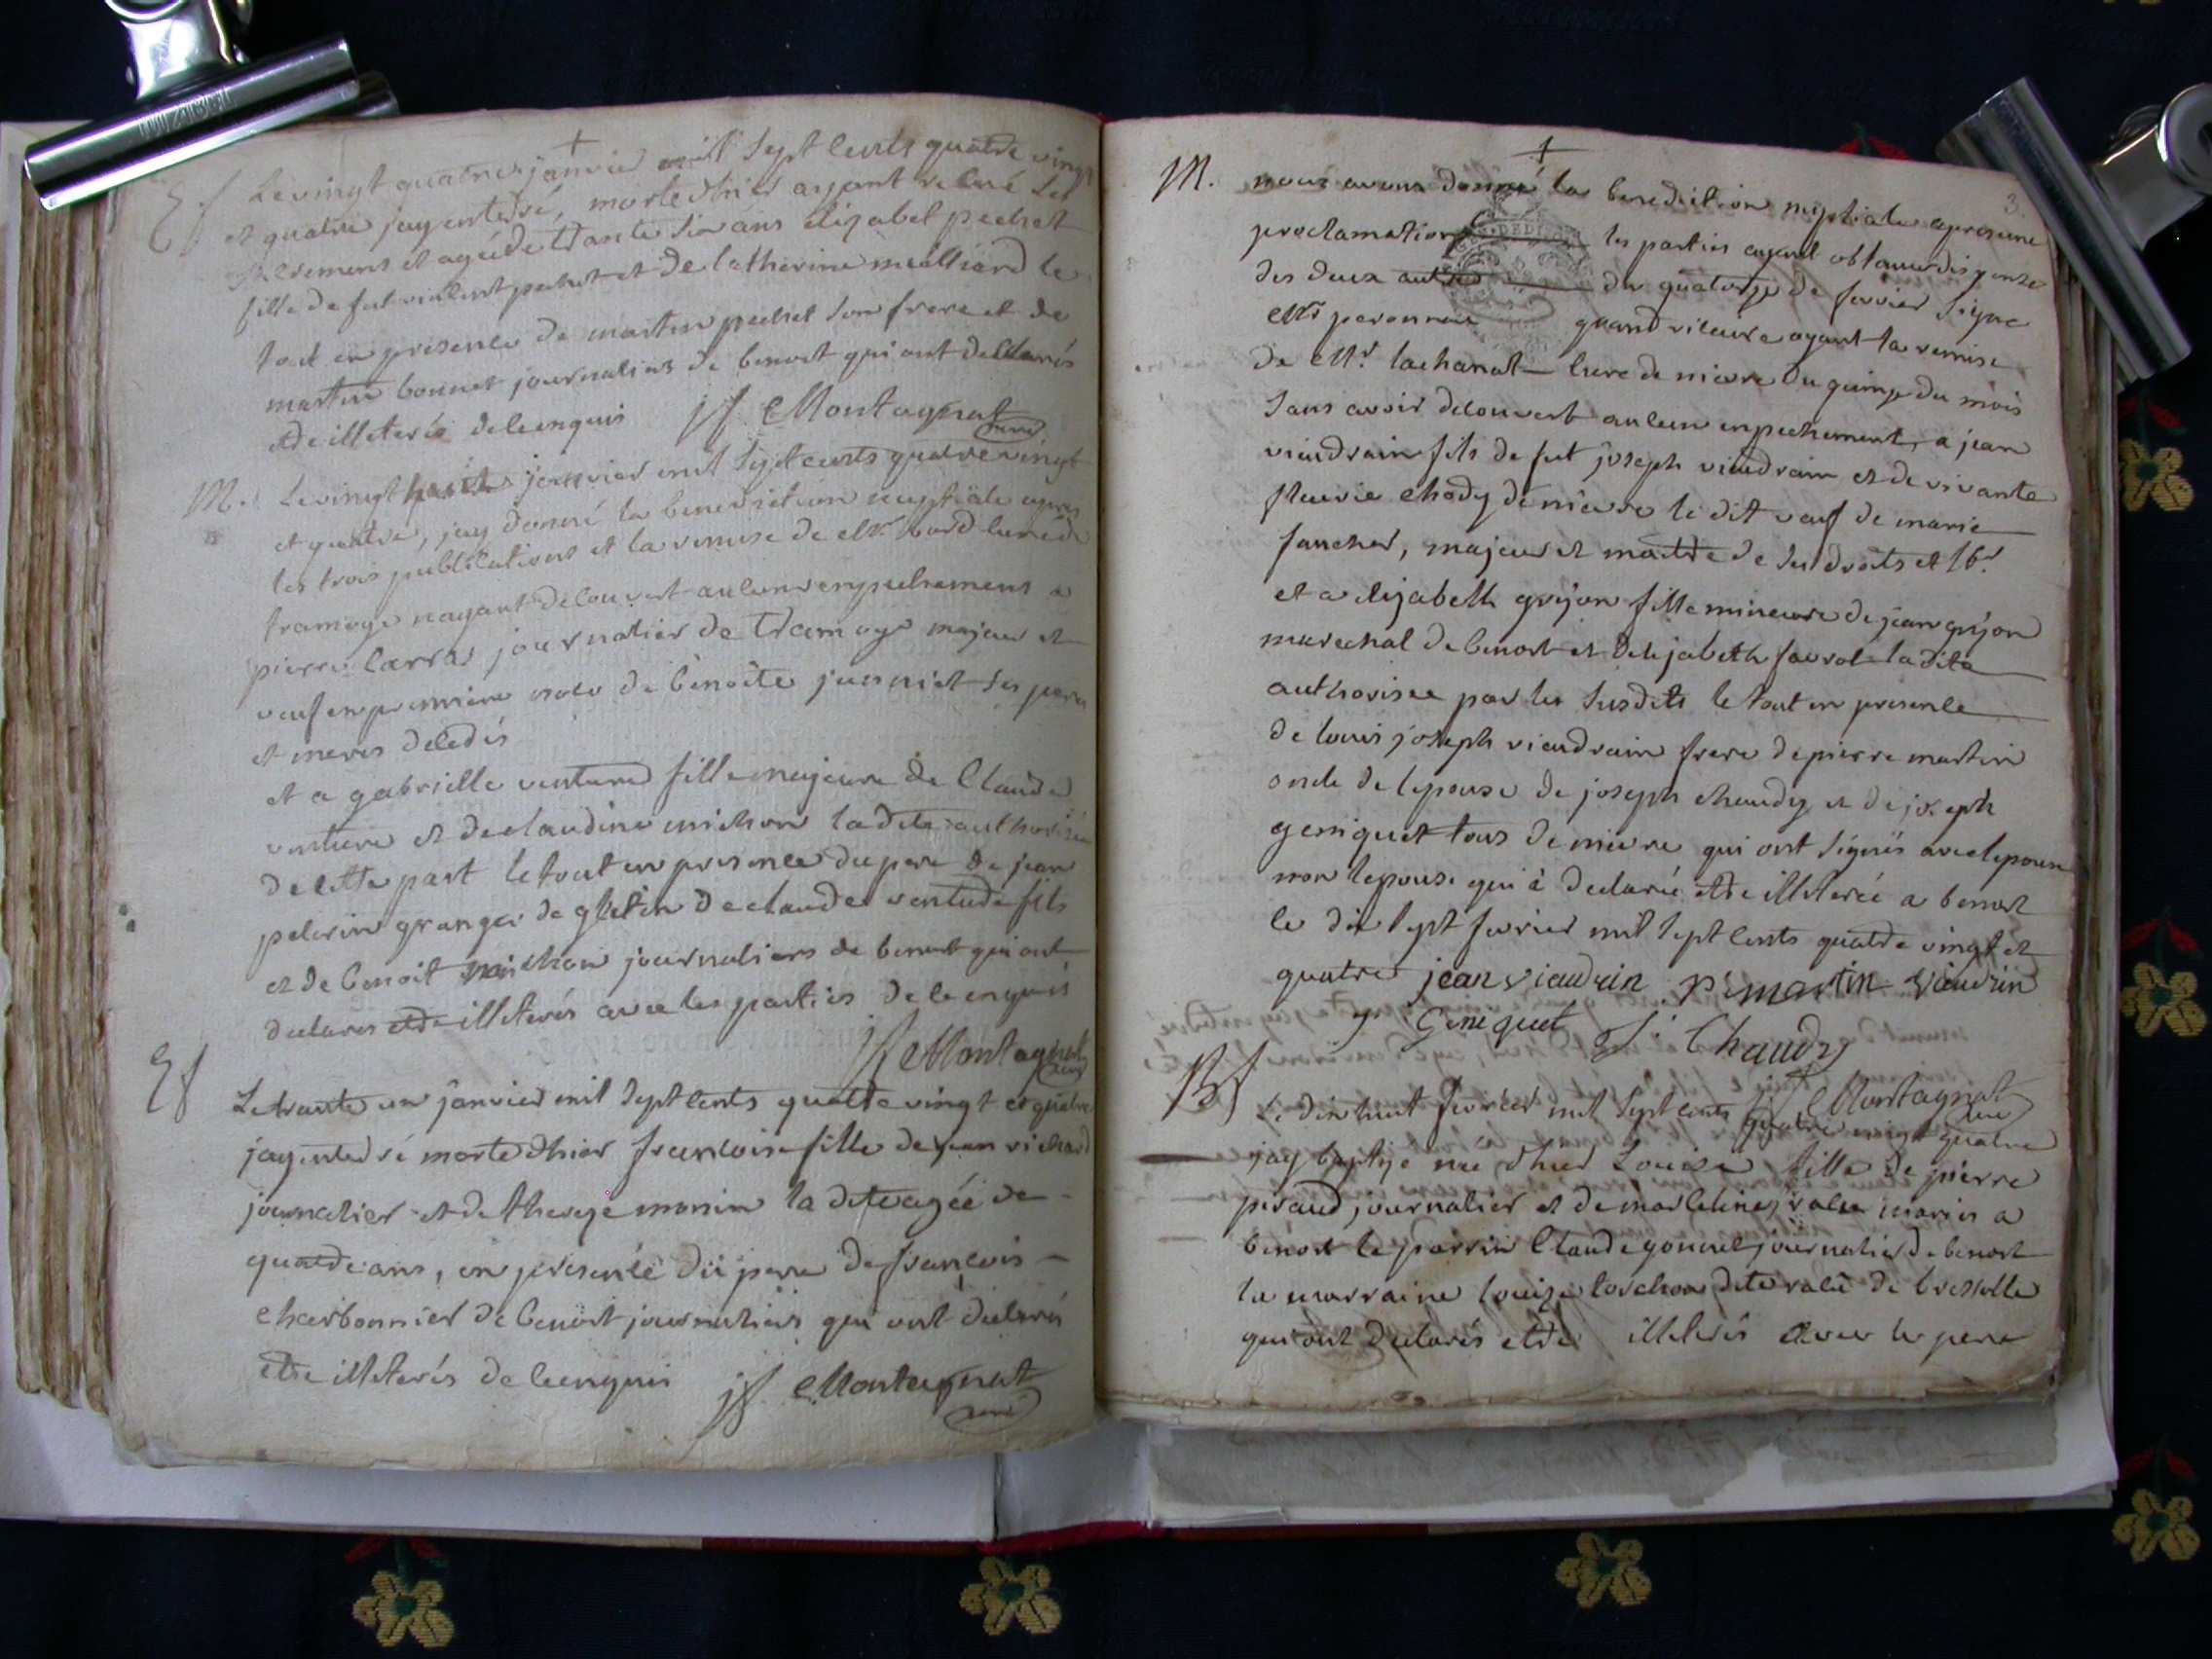 Ef Le vingt quatre janvier mil sept cents quatre vingt
et quatre jay enterré, morte d'hier ayant recue les
sacrements et agée de trante six ans elizabet pechet
fille de fut vincent pechet et de catherine milliard le
tout en presence de martin pechet son frere et de
martin bonnet journaliers de benost qui ont declarés
etre illeterés de ce enquis jf Montagnat curé
M. Le vingt huit janvier mil sept cents quatre vingt
et quatre, jay donné la benediction nuptiale apres
les trois publications et la remise de Mr. curé de
tramoye nayant decouvert aucuns enpechements a
pierre carras journalier de tramoye majeur et
veuf en premiere de benoite ses peres
et meres decedés
et a gabrielle venture fille majeure de Claude
venture et de claudine michon la dite authorisée
de cette part le tout en presence du pere de jean
pelerin granger de de claude venture fils
et de benoit michon journaliers de benost qui ont
declarés etre illeterés avec les parties de ce enquis
jf Montagnat curé
Ef Le trante un janvier mil sept cents quatre vingt et quatre
jay enterré morte d'hier francoise fille de jean richard
journalier et de therese monin la dite agée de
quatre ans, en presence du pere de francois
charbonnier de benost journaliers qui ont declarés
etre illeterés de ce enquis jf Montagnat
curé
3
M. nous avons donné la benediction nuptiale apres une
proclamation les parties ayant obtenu dispense
des deux autres du quatorze de fevrier signe
Mr peronnet grand vicaire ayant la remise
de Mr. lachanat curé de nievre du quinze du mois
sans avoir decouvert aucun enpechement, a jean
viaudrain fils de fut joseph viaudrain et de vivante
fleurie chody de nievre le dit veuf de marie
faucher, majeur et maitre de ses droits et
et a elizabeth fille mineure de jean
marechal de benost et delizabeth favrot la dite
authorisee par les susdits le tout en presence
de louis joseph viaudrain frere de pierre martin
oncle de lepouse de joseph chaudy et de joseph
geniquet tous de nievre qui ont signés avec lepoux
non lepouse qui a declaré etre illeterée a benost
le dix sept fevrier mil sept cents quatre vingt et
quatre jean viaudrin p martin Viaudrin
j Geniquet J. Chaudy
jf Montagnat curé
Bf Le dix huit fevrier mil sept cents quatre vingt quatre
jay baptizé née d'hier Louise fille de pierre
journalier et de marceline mariés a
benost le parrin Claude journalier de benost
la marraine louize torchon dite de bressolle
qui ont declarés etre illeterés avec le pere